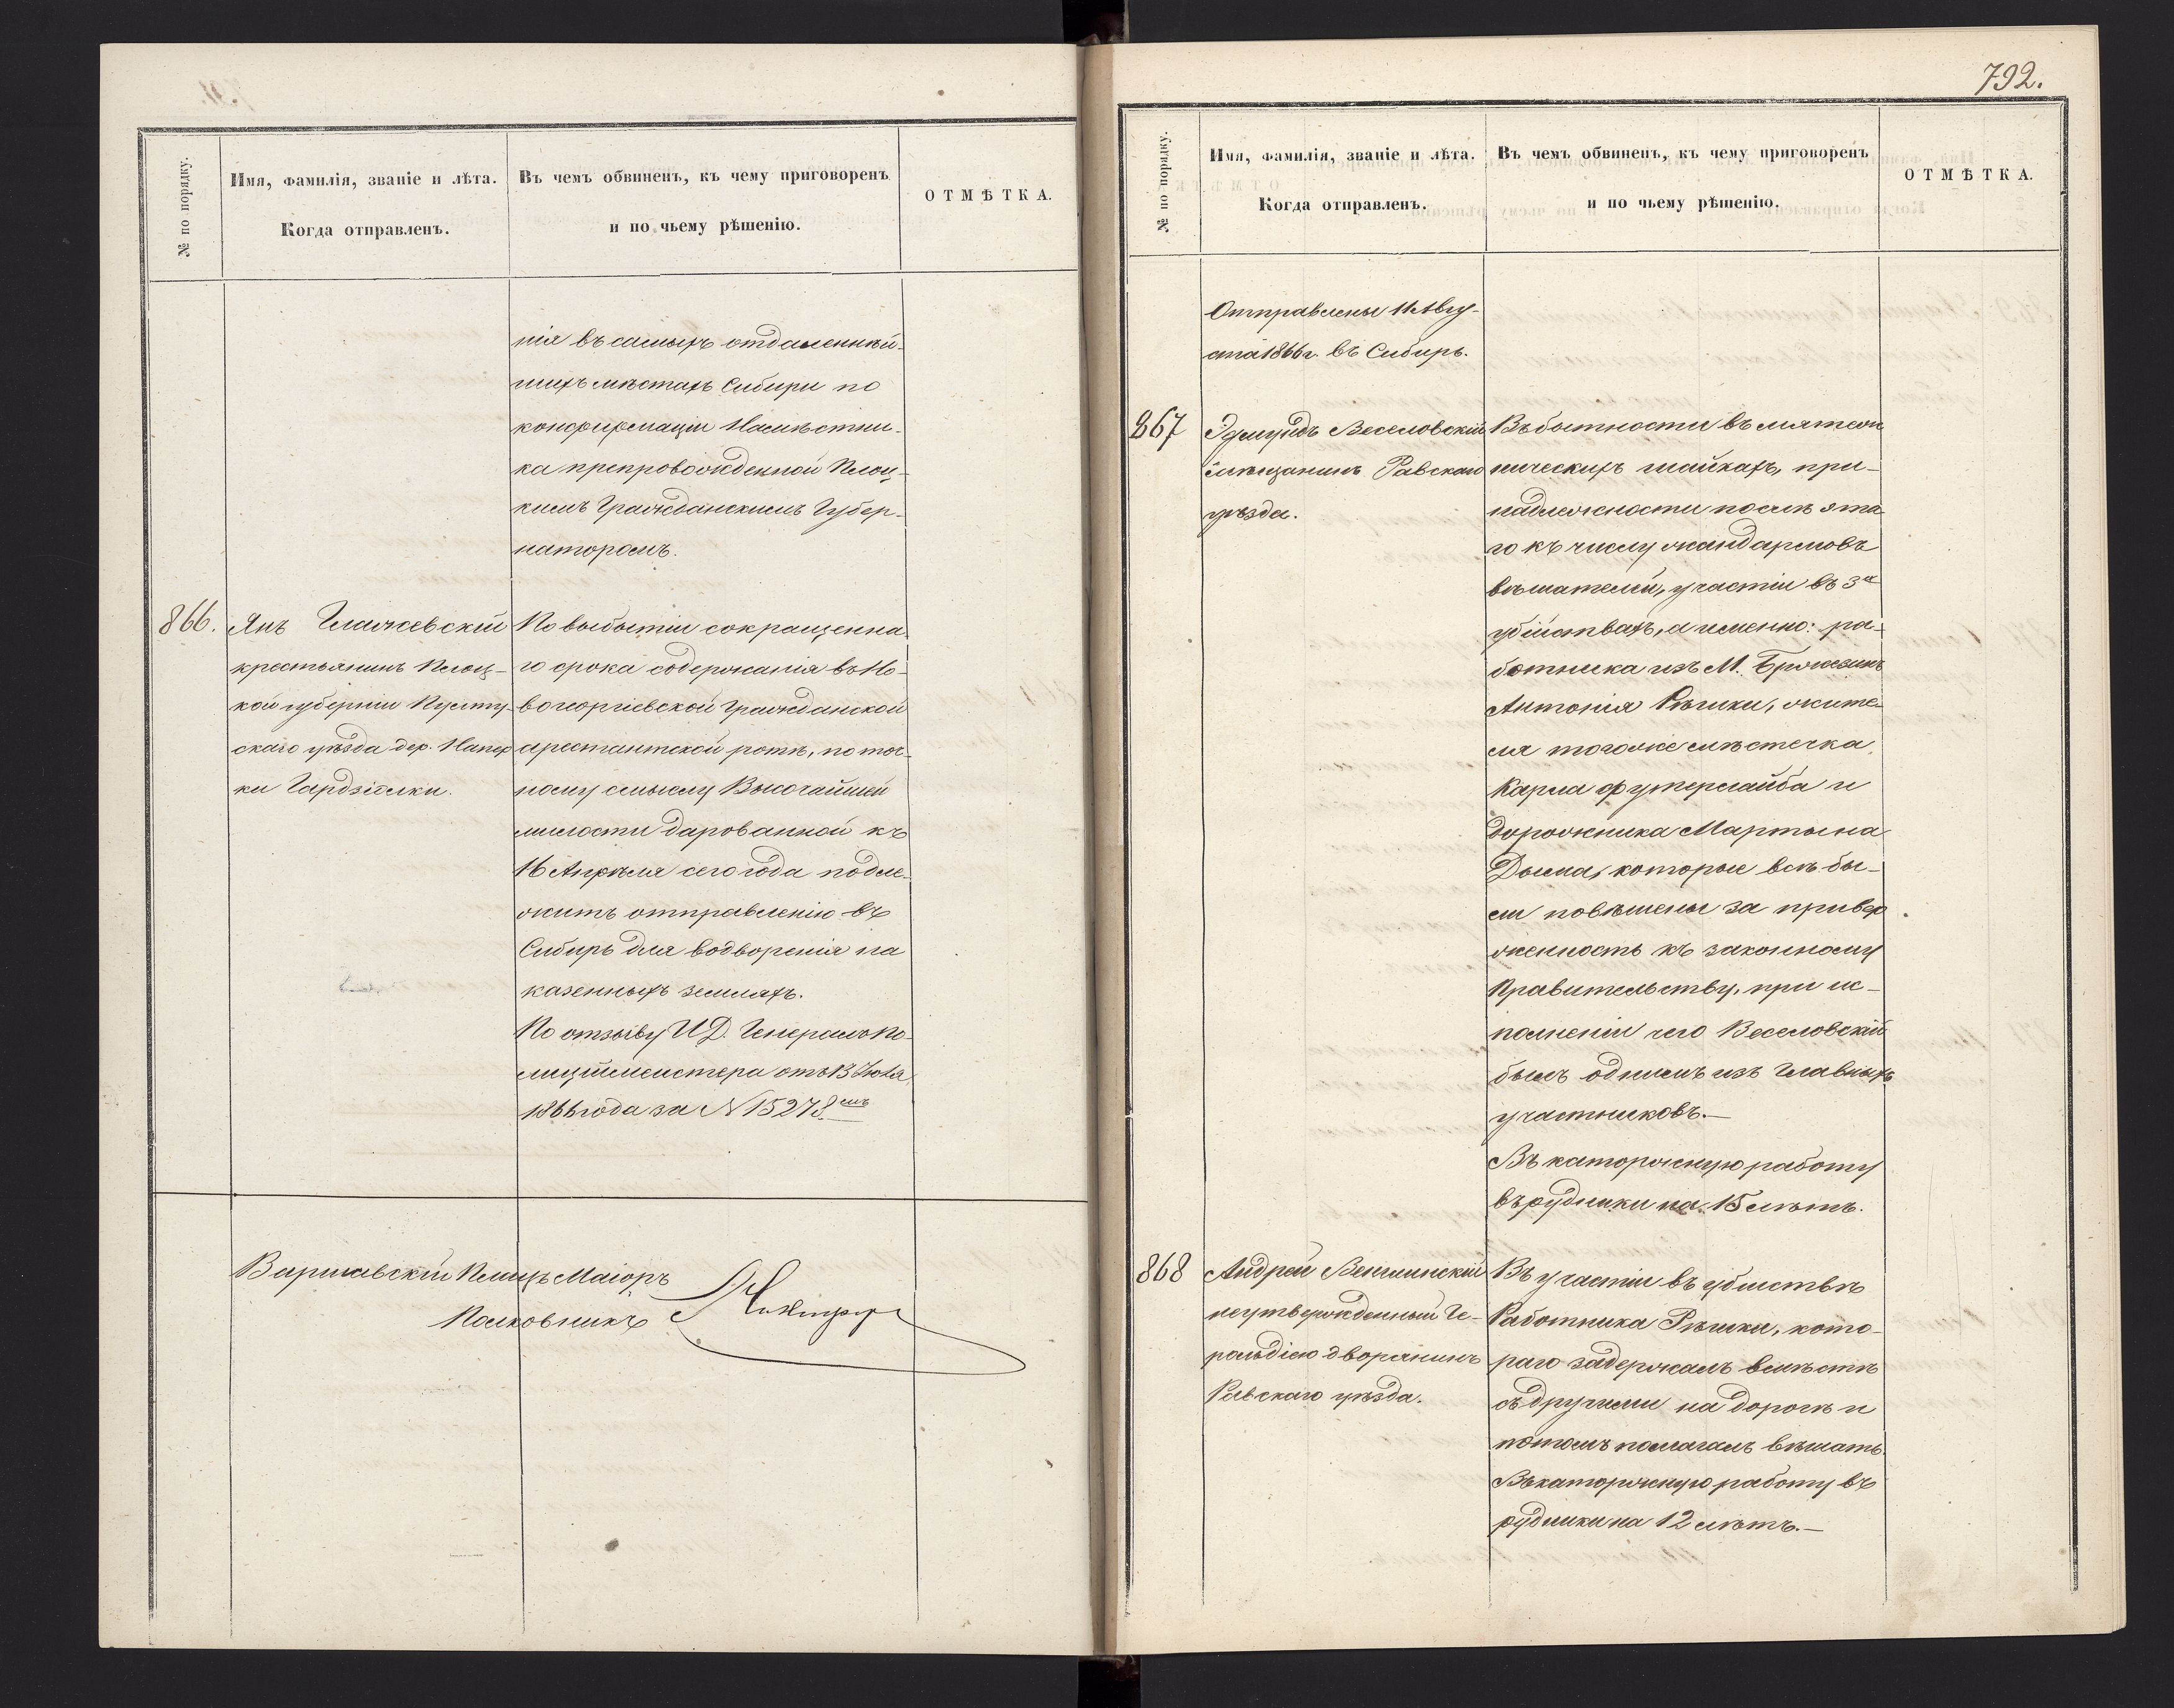 № по порядку.
Имя, фамилія, званіе и лѣта.
Когда отправленъ.
Въ чемъ обвиненъ, къ чему приговоренъ
и по чьему рѣшенію.
ОТМѢТКА.
нія въ самыхъ отдаленнѣй-
шихъ мѣстахъ Сибири по
конфирмаціи Намѣстни-
ка препровожденной Плоц-
кимъ Гражданскимъ Губер-
наторомъ.
866.
Янъ Глажевскій
крестьянинъ Плоц-
кой губерніи Пулту-
скаго уѣзда дер.
ки
По выбытіи сокращенна-
го срока содержанія въ Но-
вогеоргіевской Гражданской
арестантской ротѣ, по точ-
ному смыслу Высочайшей
милости дарованной къ
16 Апрѣля сего года подле-
житъ отправленію въ
Сибирь для водворенія на
казенныхъ земляхъ.
По отзыву И.Д. Генералъ По-
лиціймейстера отъ 13 Іюля
1866 года за N 15278.мъ
Варшавскій Плацъ Маіоръ
Полковникъ
792.
№ по порядку.
Имя, фамилія, званіе и лѣта.
Когда отправленъ.
Въ чемъ обвиненъ, къ чему приговоренъ
и по чьему рѣшенію.
ОТМѢТКА.
Отправлены 11 Авгу-
ста 1866 г. въ Сибирь.
867
Эдмундъ Веселовскій
мѣщанинъ Равскаго
уѣзда.
Въ бытности въ мятеж
ническихъ шайкахъ, при-
надлежности послѣ эта
го къ числу жандармовъ
вѣшателей, участіи въ 3хъ
убійствахъ, а именно: ра-
ботника изъ М. Бржезинъ
Антонія Рѣшки, жите-
ля тогоже мѣстечка
Карла Футерлайба и
дорожника Мартына
Дыма, которые всѣ бы-
ли повѣшены за привер
женность къ законному
Правительству, при ис-
полненіи чего Веселовскій
былъ однимъ изъ главныхъ
участниковъ.—
Въ каторжную работу
въ рудники на 15 лѣтъ.
868
Андрей Венглинскій
неутвержденный Ге-
рольдіею дворянинъ
Равскаго уѣзда.
Въ участіи въ убійствѣ
Работника Рѣшки, кото-
раго задержалъ вмѣстѣ
съ другими на дорогѣ и
потомъ помагалъ вѣшать.
Въ каторжную работу въ
рудники на 12 лѣтъ.—